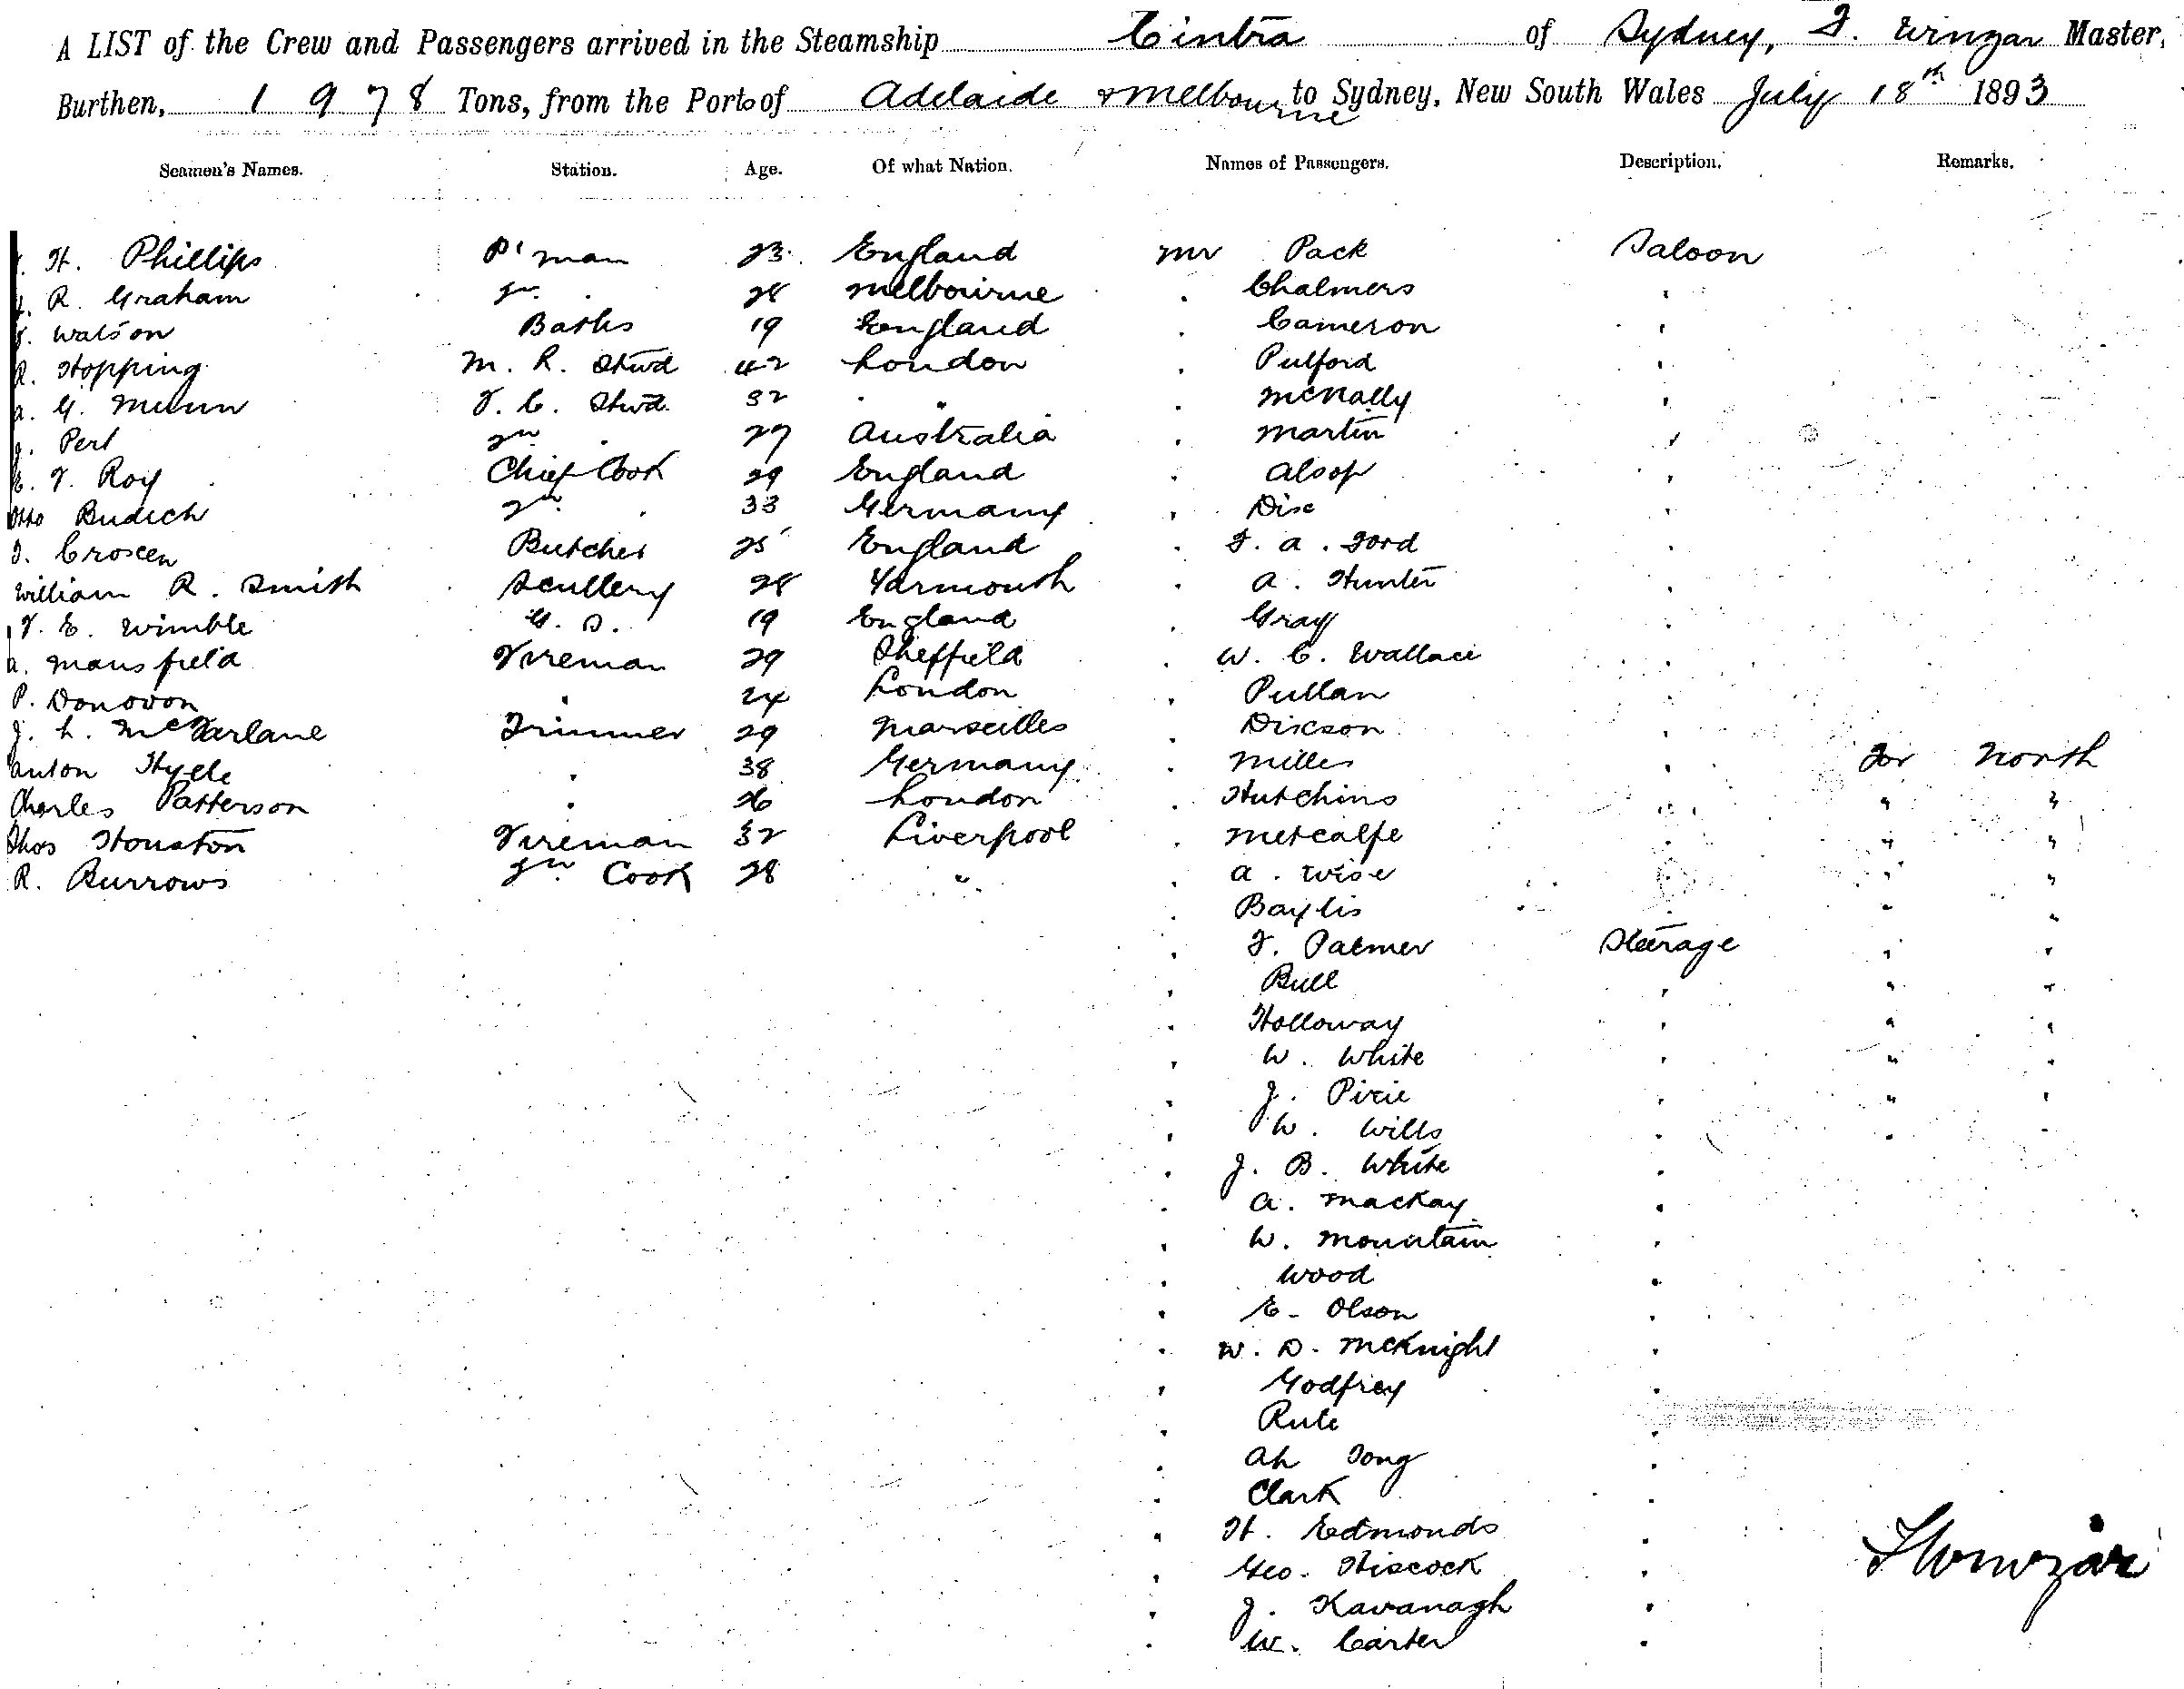 A LIST of the Crew and Passengers arrived in the Steamship Cintra of Sydney, F. Wingar Master,
Burthen, 1978 Tons, from the Port of Adelaide & Melbourne to Sydney, New South Wales July 18th 1893
Seamen's Names. Station. Age. Of what Nation. Names of Passengers. Description. Remarks.
H. Phillips P'man 23 England Mr Pack Saloon
R. Graham 2nd . 28 Melbourne . Chalmers "
Watson Baths 19 England . Cameron "
R. Hopping M. R. Stwd 42 London . Pulford "
A. G. Munn F. C. Stwd 32 . " . McNally "
Pert 2nd . 27 Australia . Martin "
E. F. Roy Chief Cook 29 England . Alsop "
Otto Budich 2nd . 33 Germany "
Butcher 25 England . F. A. Ford "
William R. Smith Scullery 28 Yarmouth . A. Hunter "
F. E. Wimble G. S. 19 England . Gray "
A. Mansfield Fireman 29 Sheffield . W. C. Wallace "
P. Donovon " 24 London . Pullan "
J. L. McFarlane Trimmer 29 Marseilles . Dickson "
Anton " 38 Germany . Miller " For North
Charles Patterson " 26 London . Hutchins " " "
Thos Houston Fireman 32 Liverpool . Metcalfe " " "
R. Burrows 2nd Cook 28 " . A. Wise " " "
. Baylis " " "
. F. Palmer Steerage " "
. Bull " " "
. Holloway " " "
. W. White " " "
. J. Pirie " " "
. W. Wills " " "
. J. B. White "
. A. Mackay "
. W. Mountain "
. Wood "
. E. Olson "
. W. D. McKnight "
. Godfrey "
. Rule "
. Ah Tong "
. Clark "
" H. Edmonds "
. Geo. Hiscock "
. J. Kavanagh "
. W. Carter "